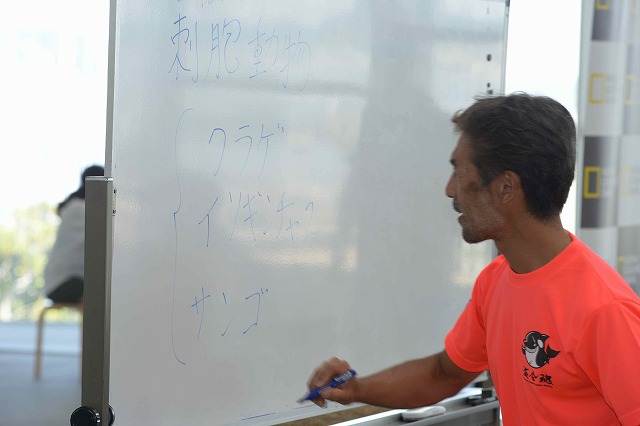 刺胞動物
クラゲ
イソギンチャク
サンゴ